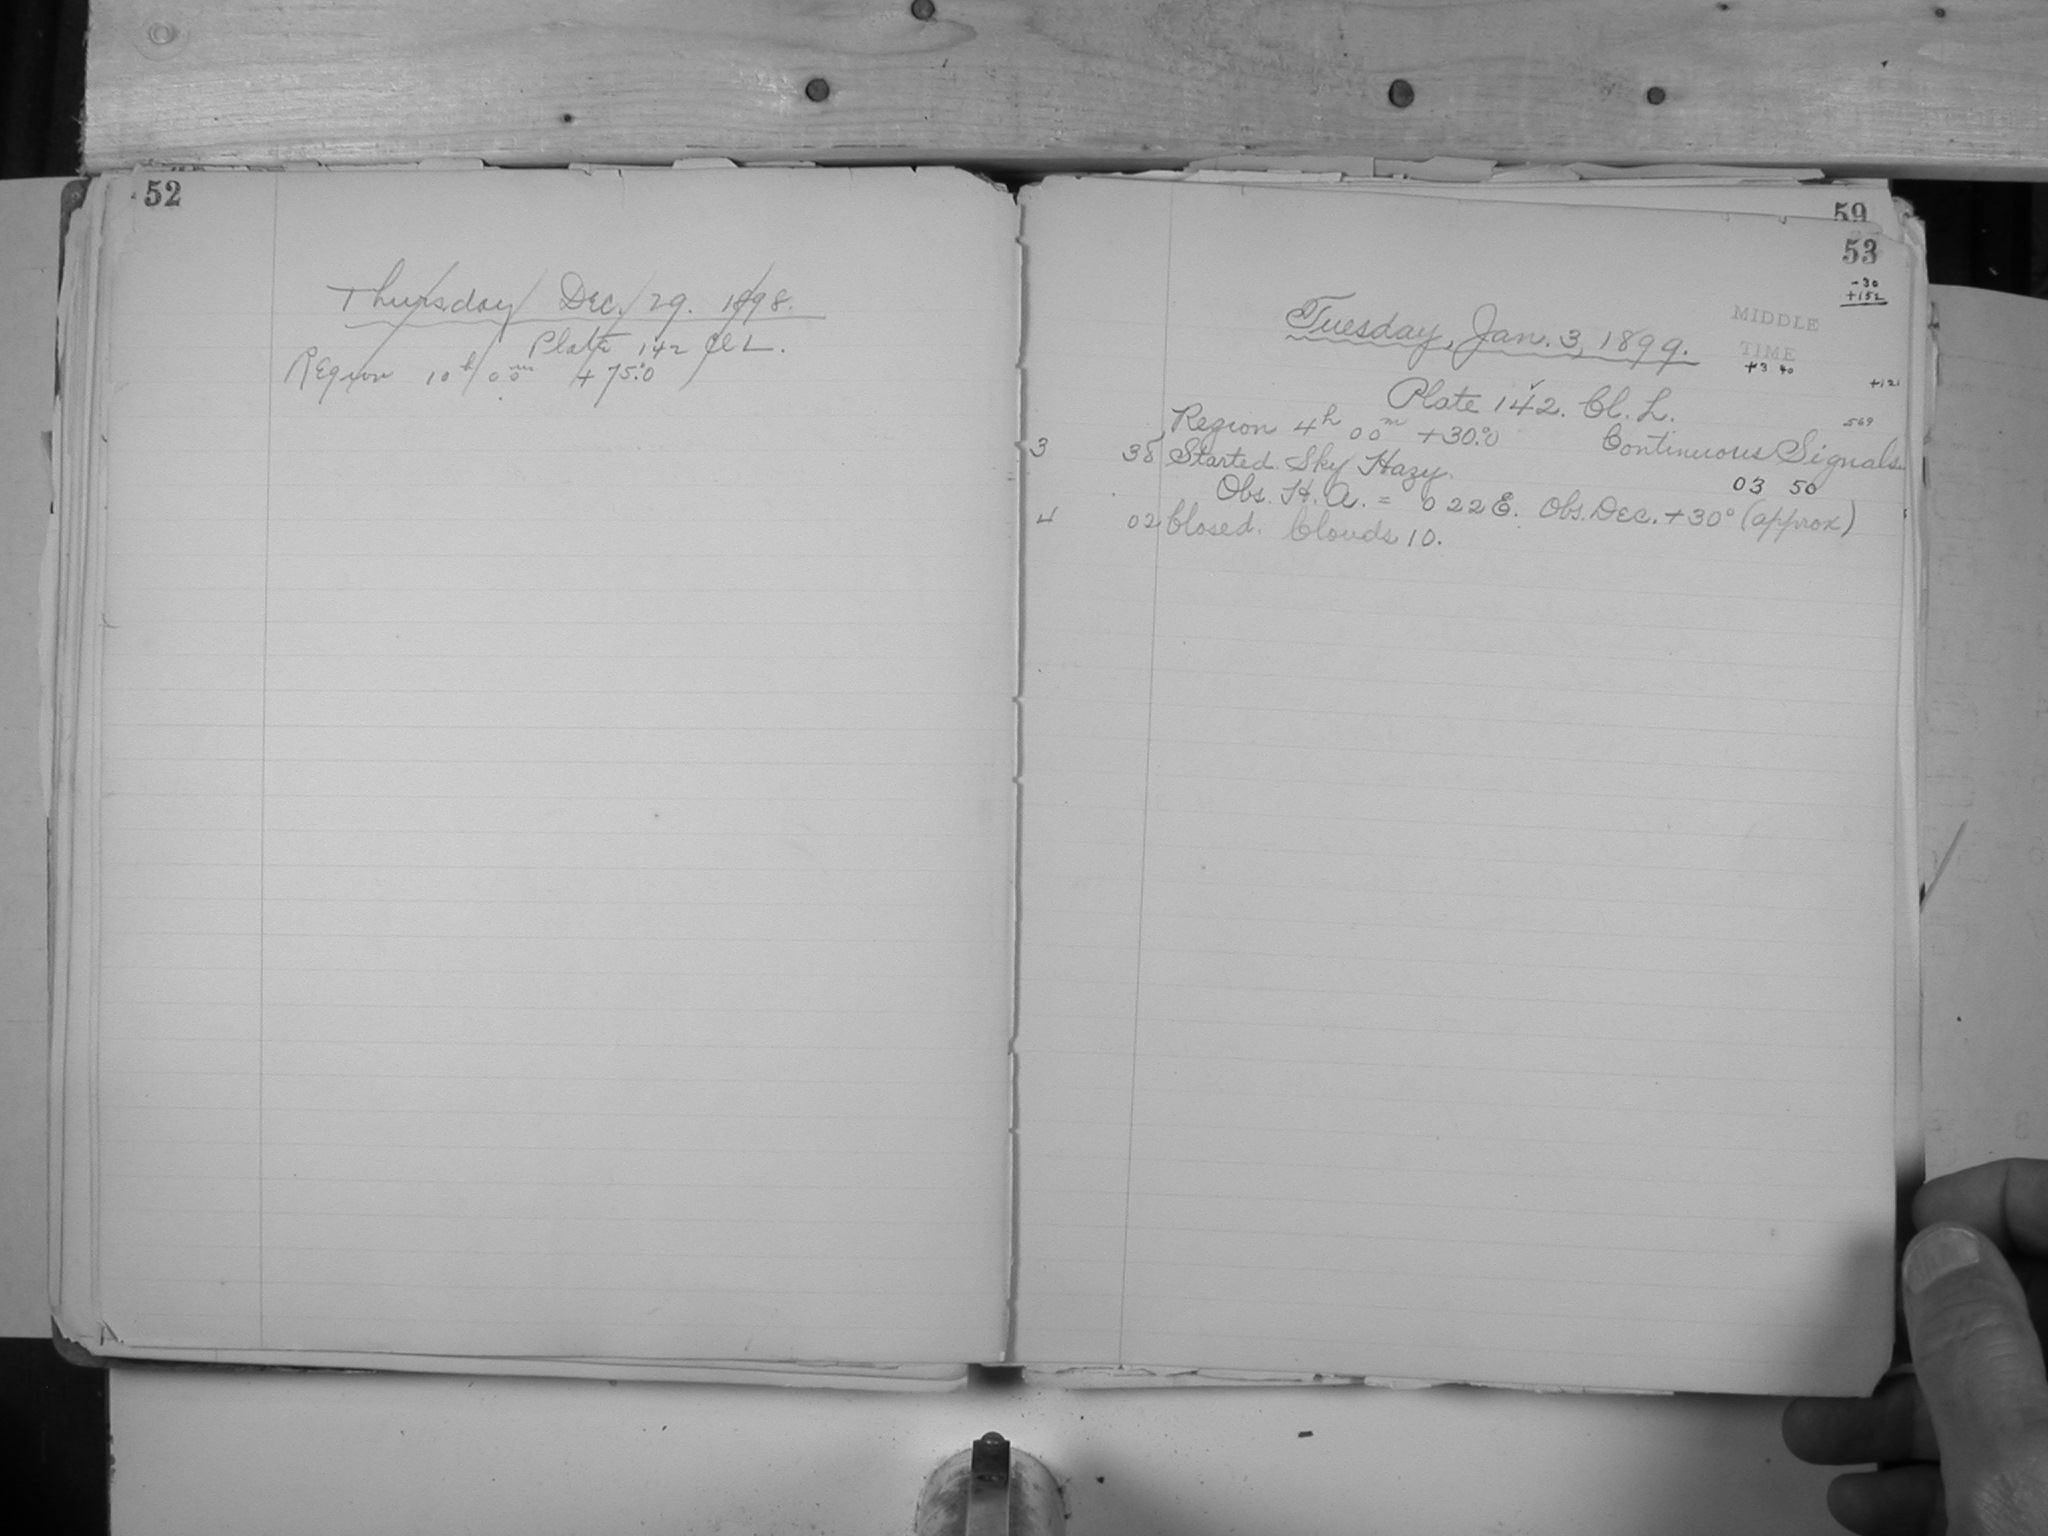 52
Thursday Dec. 29. 1898.
Plate 142 Cl L.
Region 10h 00m +75.°0
59
53
-30
+152
Tuesday, Jan. 3, 1899.
MIDDLE
TIME
+3 40
+121
Plate 142. Cl. L.
569
Region 4h 00m +30.°0 Continuous Signals
3 38 Started. Sky Hazy.
03 50
Obs. H. A. = 0 22 E. Obs. Dec. +30° (approx)
4 02 Closed. Clouds 10.